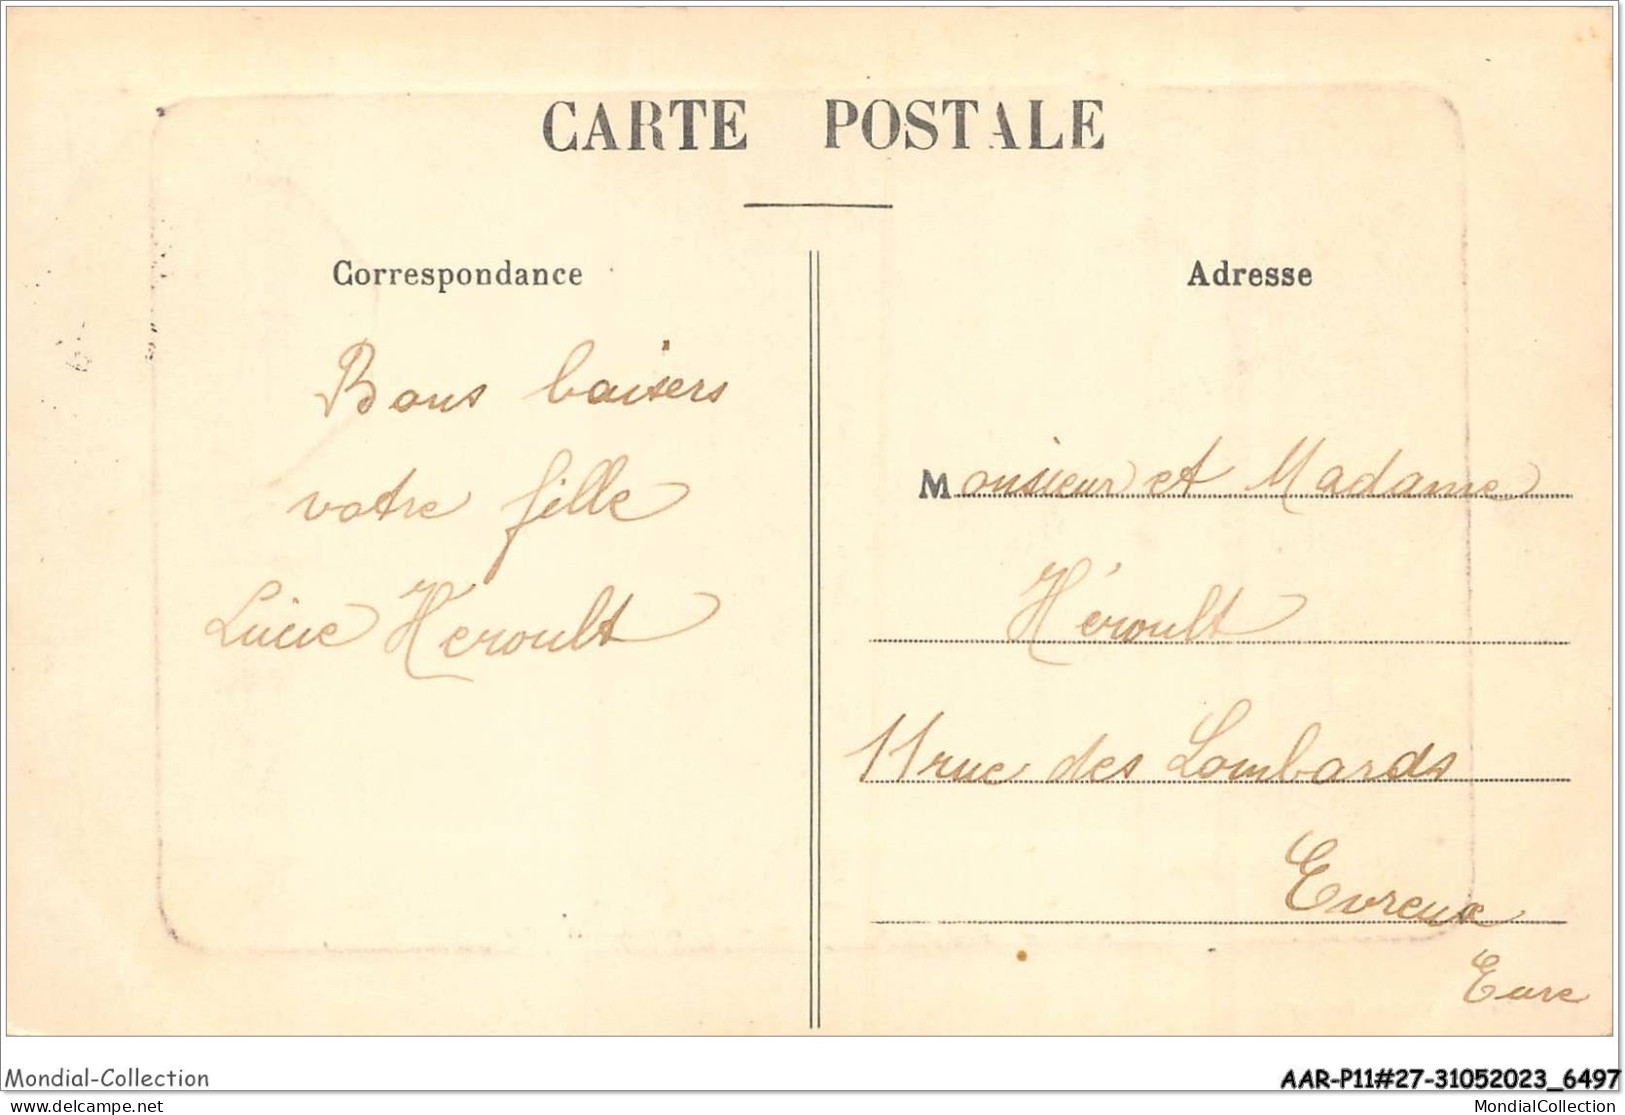 CARTE POSTALE
Correspondance
Bons baisers
votre fille
Lucie Heroult
Adresse
Monsieur et Madame
Héroult
11 rue des Lombards
Evreux
Eure
Mondial-Collection
AAR-P11#27-31052023_6497
www.delcampe.net
MondialCollection